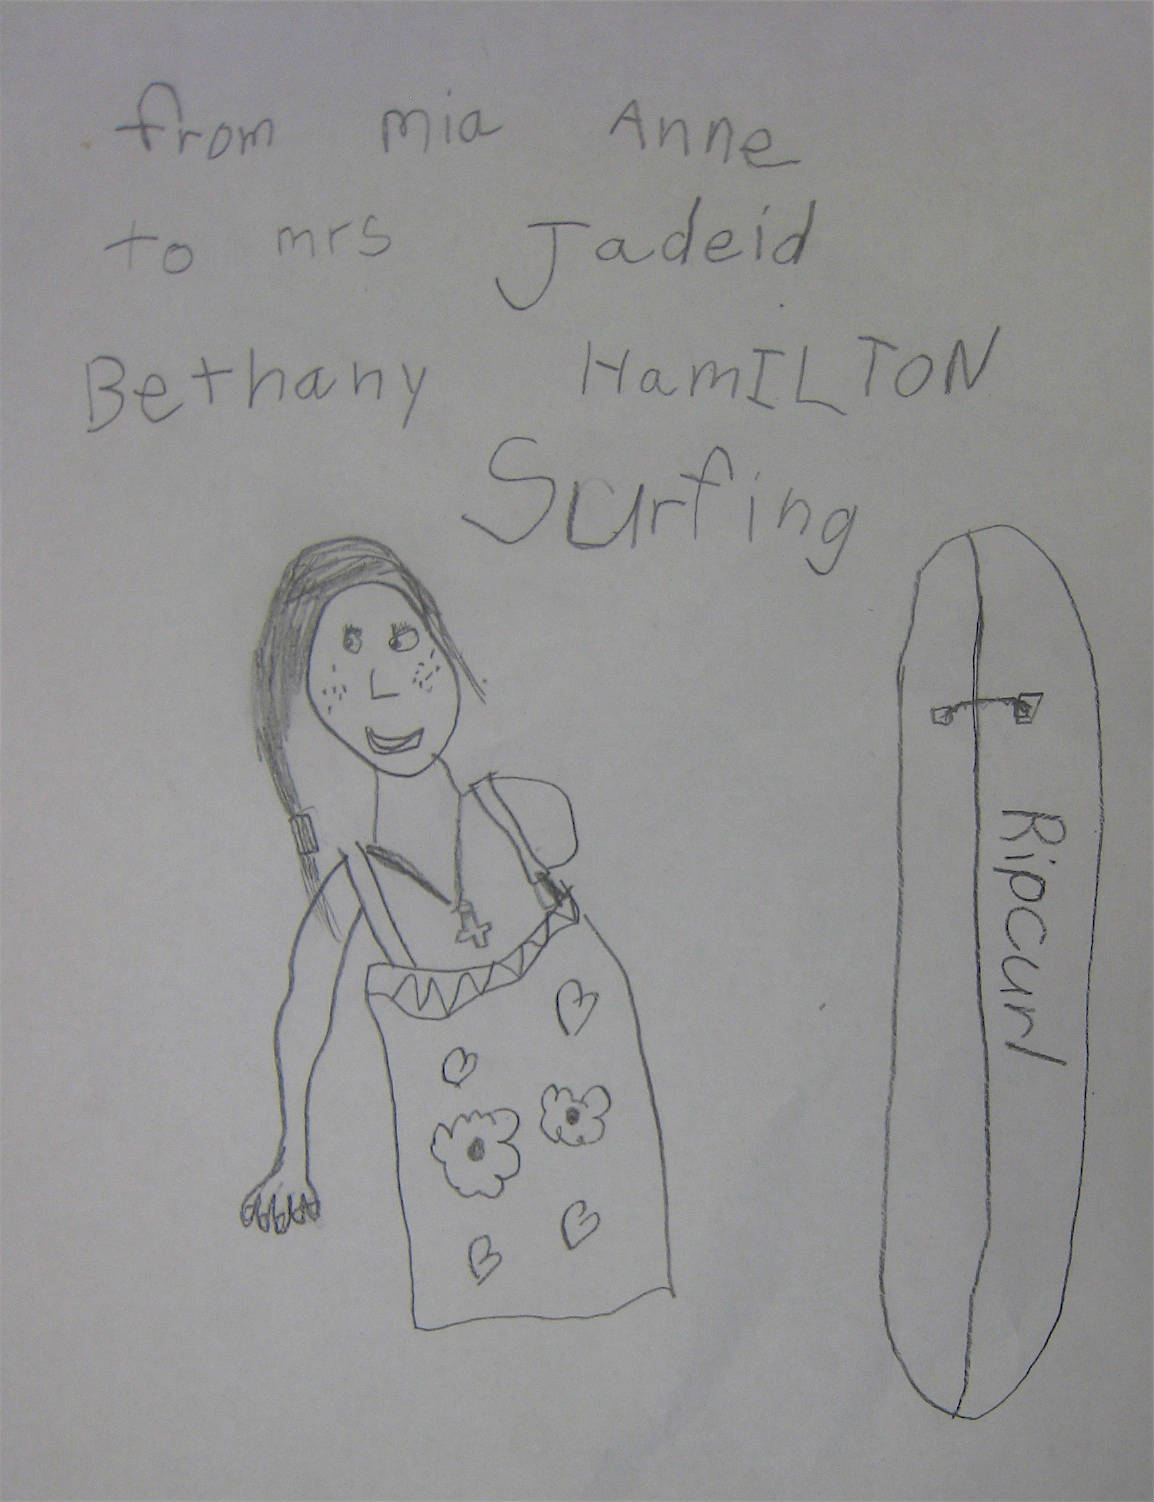 from mia Anne
to mrs Jadeid
Bethany HamILTON
Surfing
Ripcurl